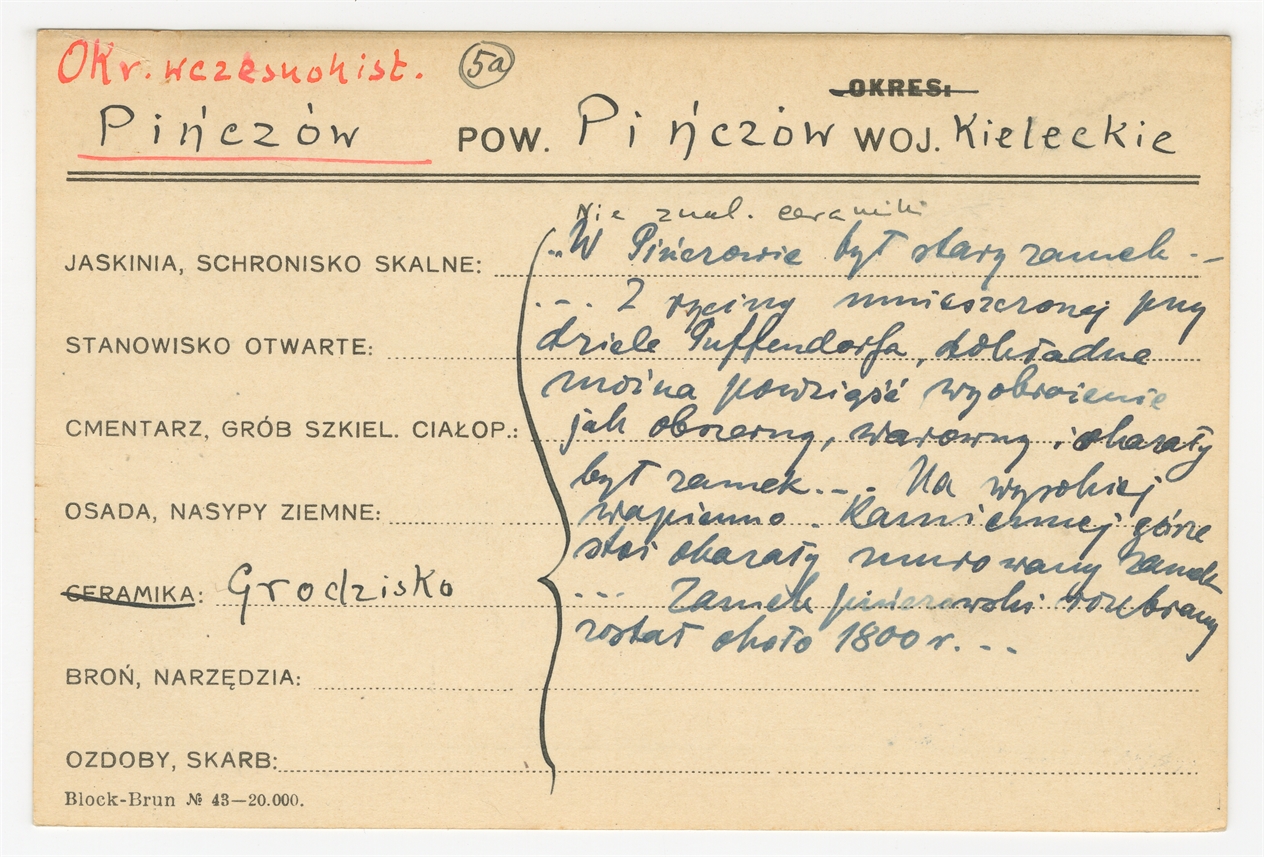 Okr. wczesnohist. 5a
OKRES:
Pińczów POW. Pińczów WOJ. Kieleckie
Nie znal. ceramiki
JASKINIA, SCHRONISKO SKALNE: „W Pińczowie był stary zamek . –
. – . Z ryciny umieszczonej przy
STANOWISKO OTWARTE: dziele Puffendorfa, dokładne
można powziąść wyobrażenie
CMENTARZ, GRÓB SZKIEL. CIAŁOP.: jak obszerny, warowny i okazały
był zamek . – . Na wysokiej
OSADA, NASYPY ZIEMNE: wapienno . Kamiennej górze
stoi okazały murowany zamek
CERAMIKA: Grodzisko ... Zamek pińczowski rozebrany
został około 1800 r. ...
BROŃ, NARZĘDZIA:
OZDOBY, SKARB:
Block-Brun № 43—20.000.